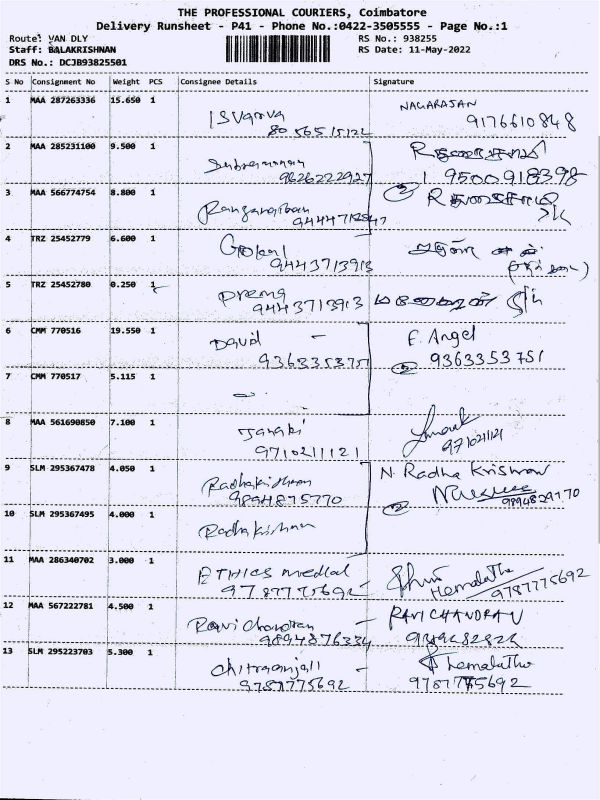 THE PROFESSIONAL COURIERS, Coimbatore
Delivery Runsheet - P41 - Phone No.:0422-3505555 - Page No.:1
Route: VAN DLY
RS No.: 938255
Staff: BALAKRISHNAN
RS Date: 11-May-2022
DRS No.: DCJB93825501
S No Consignment No Weight PCS Consignee Details Signature
1 MAA 287263336 15.650 1 ISvarya NAGARAJAN
8056515122 9176610848
2 MAA 285231100 9.500 1 Subramanian
9626222927 9500918398
3 MAA 566774754 8.800 1 Rangarajan
4 TRZ 25452779 6.600 1 Gokul
9443713913
5 TRZ 25452780 0.250 1 Prema
9443713913
6 CMM 770516 19.550 1 David - F. Angel
9363353751 2 9363353751
7 CMM 770517 5.115 1
8 MAA 561690850 7.100 1 Janaki
9710211121 971021121
9 SLM 295367478 4.050 1 Radhakrishnan N. Radha Krishnan
9894875770 2
10 SLM 295367495 4.000 1 Radhakrishnan
11 MAA 286340702 3.000 1 ETHICS medical Hemalatha
9787775692 - 9787775692
12 MAA 567222781 4.500 1 Ravichandran - RAVICHANDRAN
9894876334
13 SLM 295223703 5.300 1 Chitraanjali - Hemalatha
9787775692 9787775692